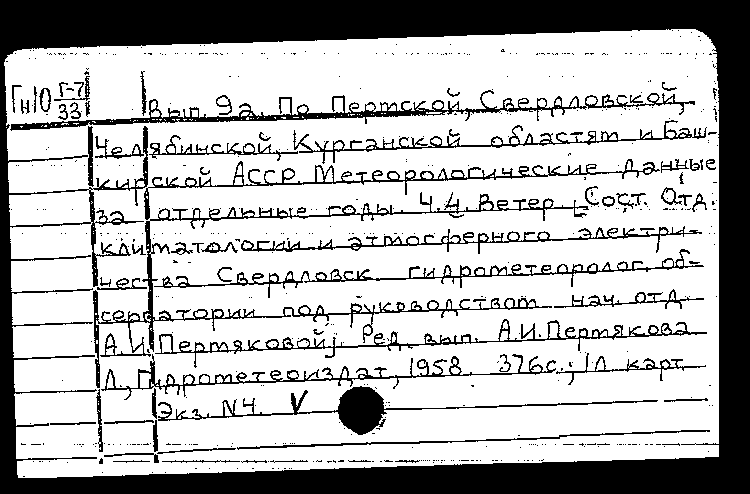 Гн10 Г-7
33
Вып. 9а. По Пермской, Свердловской,
Челябинской, Курганской областям и Баш-
кирской АССР. Метеорологические данные
за отдельные годы. Ч.4. Ветер. [Сост. Отд.
климатологии и атмосферного электри-
чества Свердловск. гидрометеоролог. об-
серватории под руководством нач. отд.
А.И. Пермяковой]. Ред. вып. А.И. Пермякова
Л., Гидрометеоиздат, 1958. 376с.; 1л карт.
Экз. N4. V